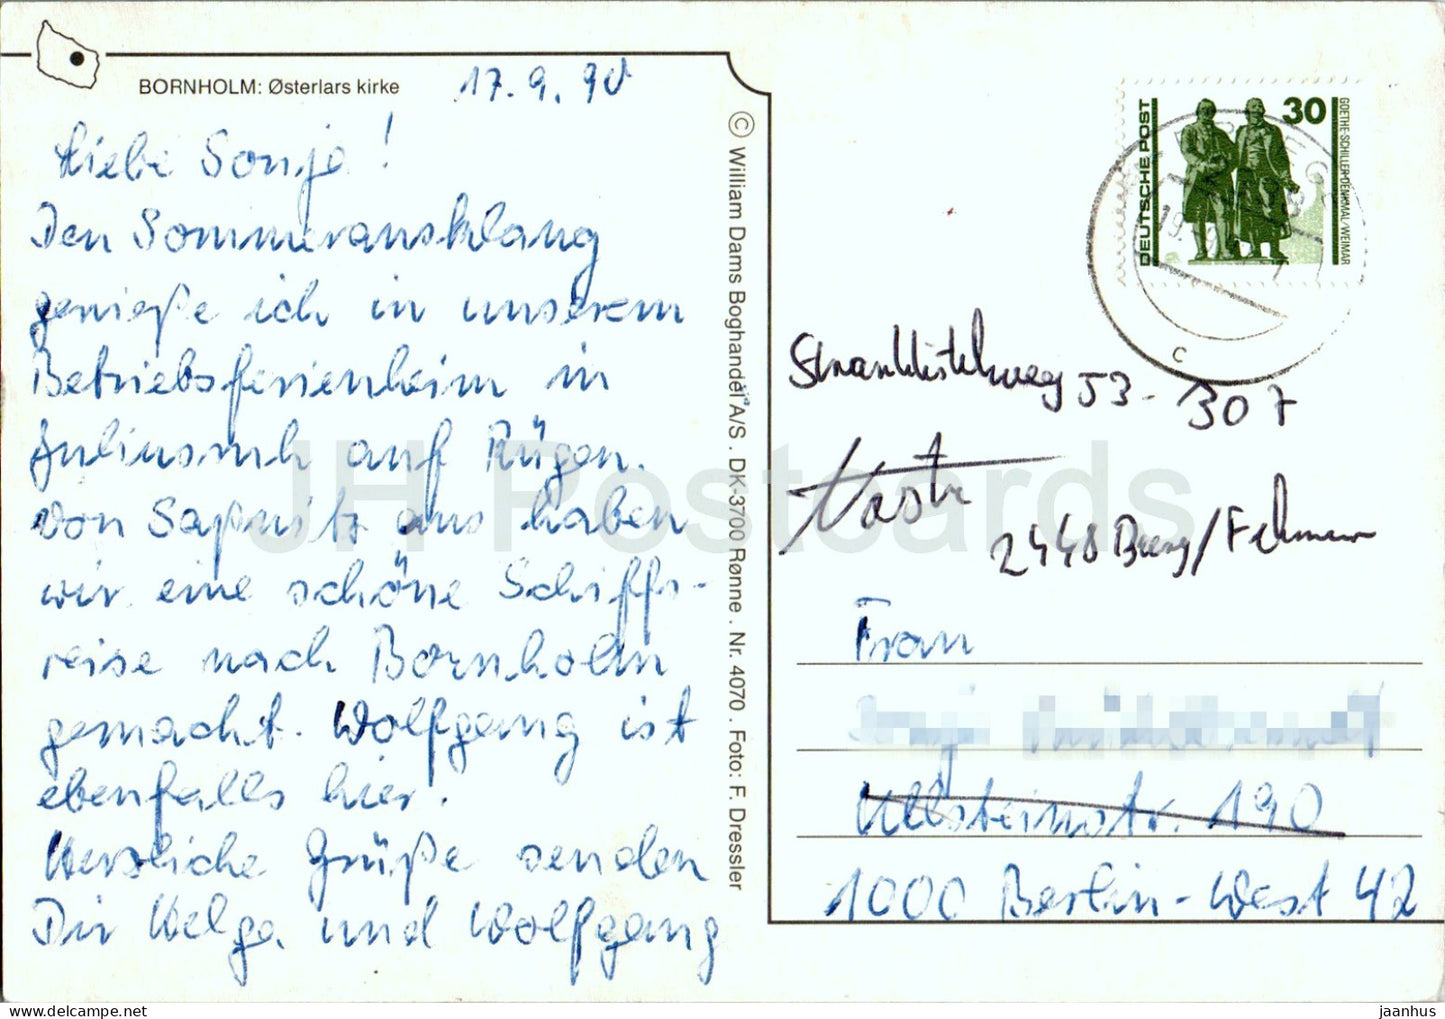 BORNHOLM: Østerlars kirke
17.9.90
Liebe Sonja!
Den Sommerausklang
genieße ich in unserem
Betriebsferienheim in
Juliusruh auf Rügen.
Von Saßnitz aus haben
wir eine schöne Schiffs-
reise nach Bornholm
gemacht. Wolfgang ist
ebenfalls hier.
Herzliche Grüße senden
Dir Helga und Wolfgang
© William Dams Boghandel A/S . DK-3700 Rønne . Nr. 4070 . Foto: F. Dressler
DEUTSCHE POST
30
GOETHE-SCHILLER-DENKMAL/WEIMAR
c
53-307
2448 Burg/Fehmarn
Frau
Ullsteinstr. 190
1000 Berlin-West 42
JH Postcards
DELCAMPE.NET
jaanhus